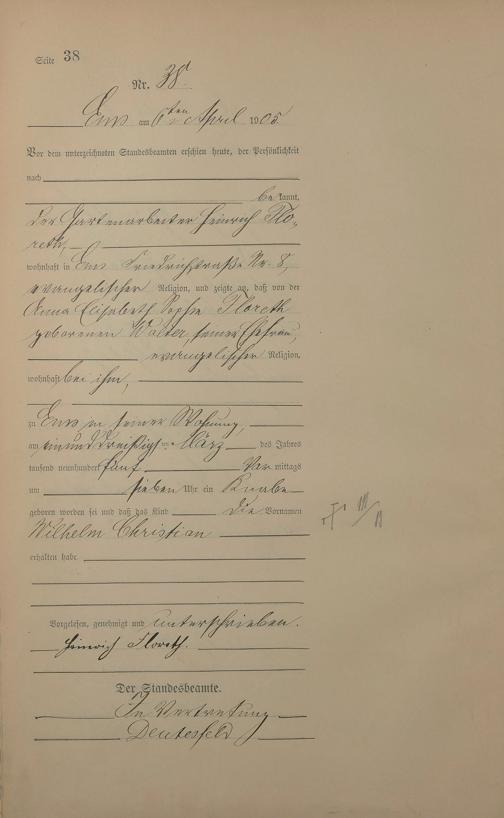 Seite 38
Nr. 38.
Ems am 6ten April 1905
Vor dem unterzeichneten Standesbeamten erschien heute, der Persönlichkeit
nach
be kannt,
der Gartenarbeiter Heinrich Flo-
reth,
wohnhaft in Ems Friedrichstraße Nr. 8,
evangelischer Religion, und zeigte an, daß von der
Anna Elisabeth Sophie Floreth
geborenen Walter, seiner Ehefrau,
evangelischer Religion,
wohnhaft bei ihm,
zu Ems in seiner Wohnung,
am einunddreißigsten März des Jahres
tausend neunhundert fünf Vor mittags
um sieben Uhr ein Knabe
geboren worden sei und daß das Kind die Vornamen
Wilhelm Christian
erhalten habe.
Vorgelesen, genehmigt und unterschrieben.
Heinrich Floreth.
Der Standesbeamte.
In Vertretung